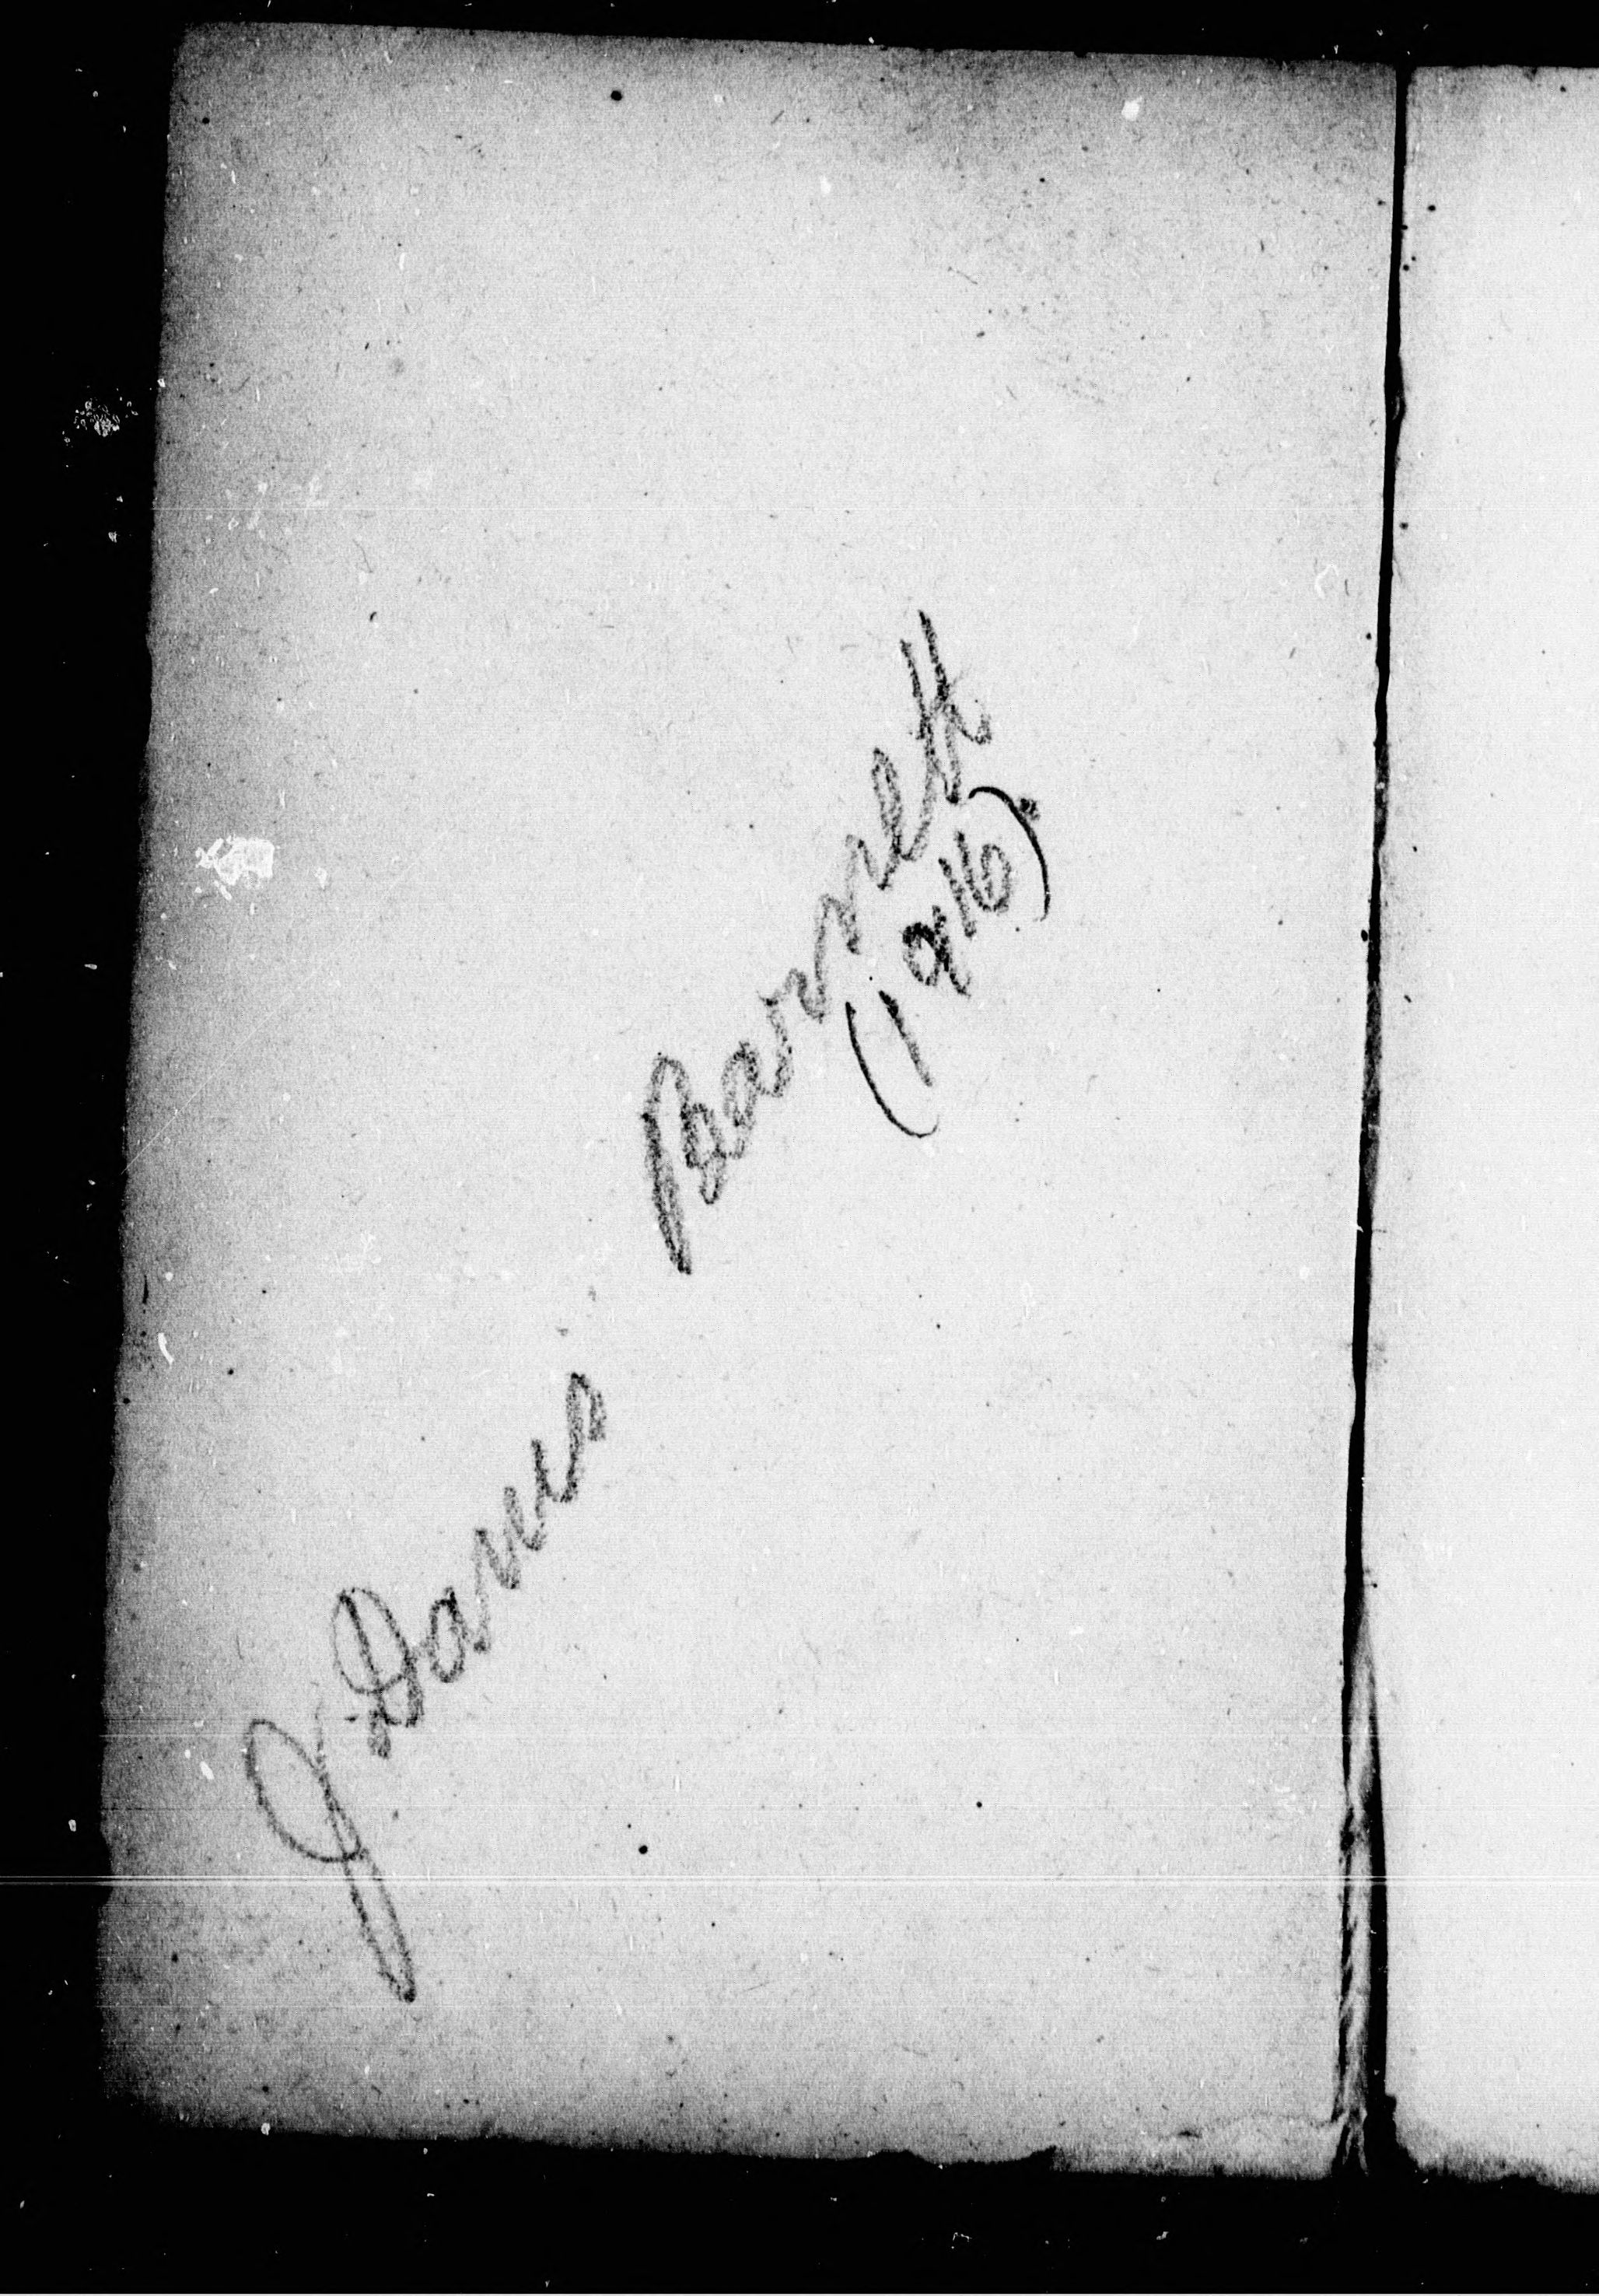 J. Davis Barnett
(1916).